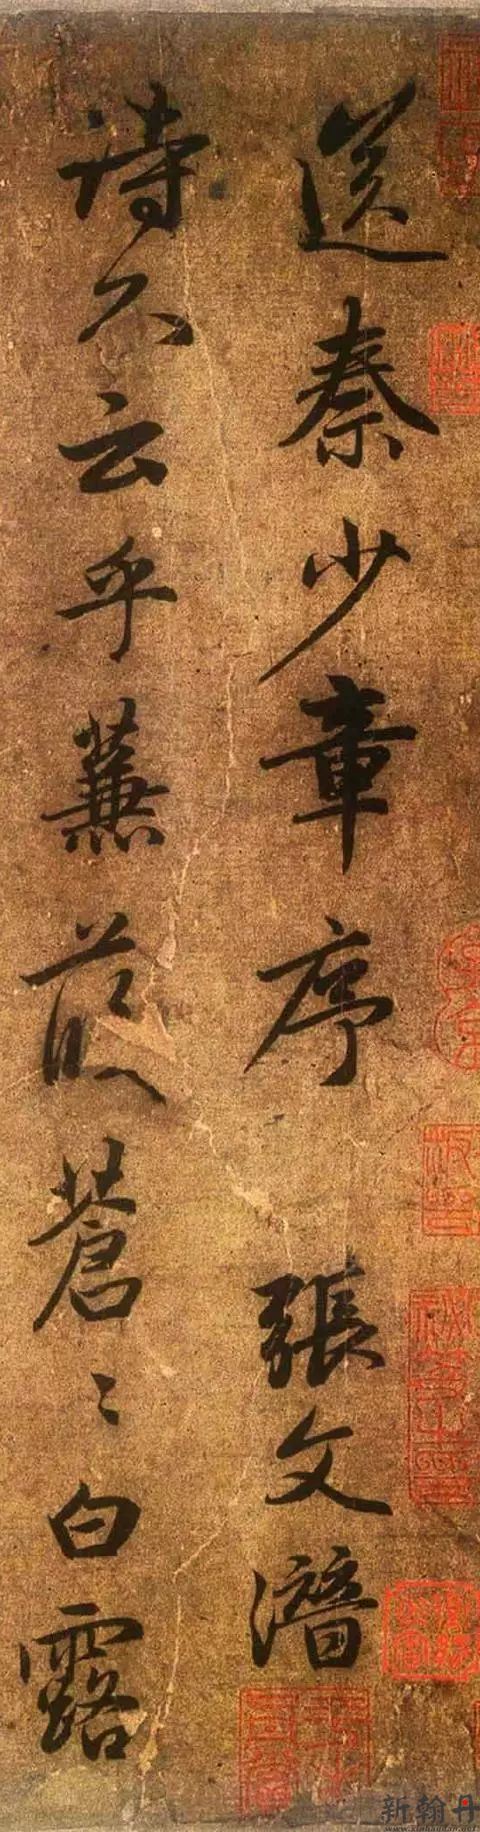 送秦少章序 張文潛
詩不云乎蒹葭蒼〻白露
新翰丹